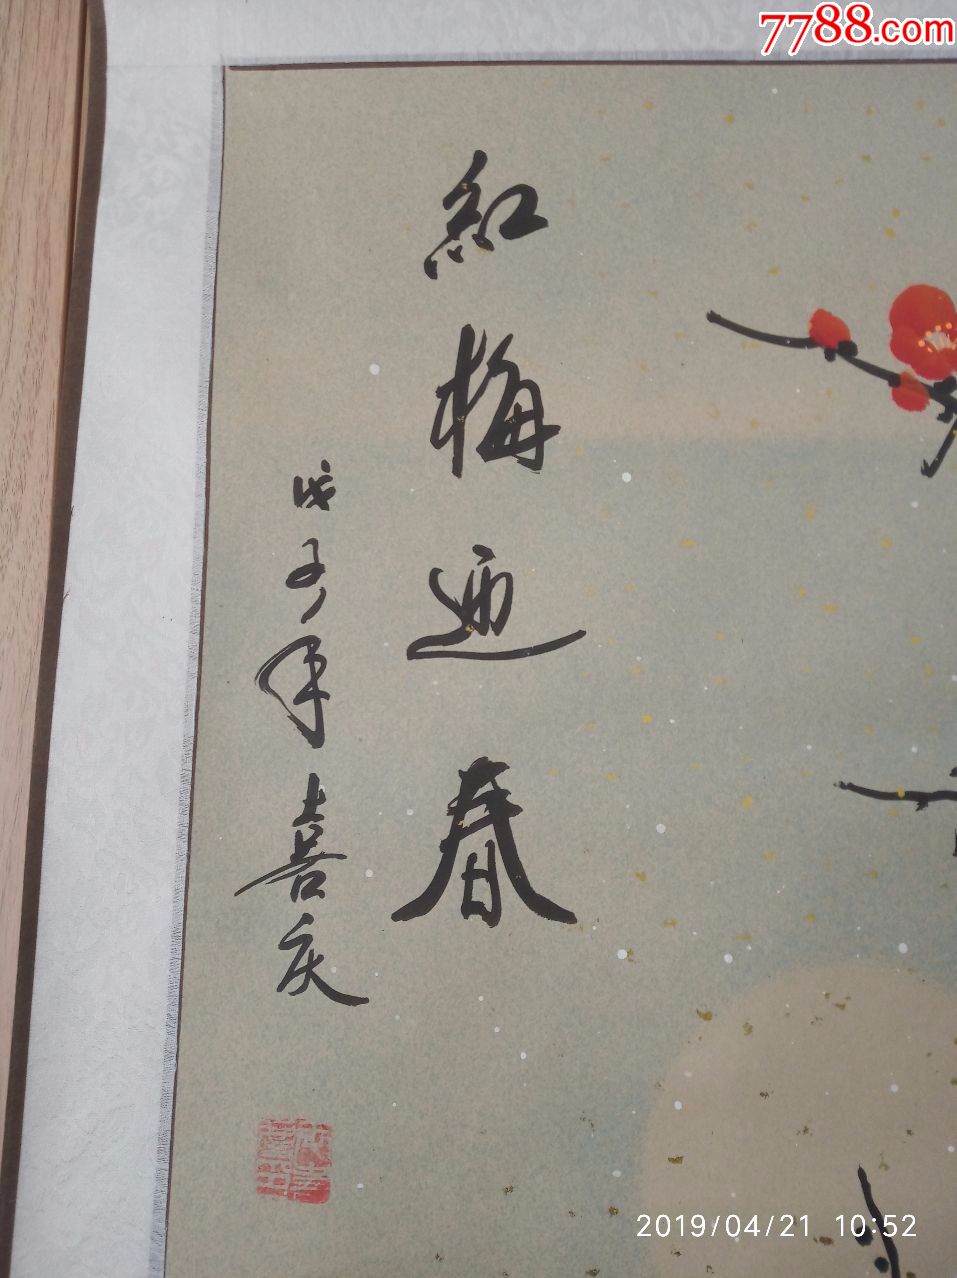 7788.com
紅梅迎春
戊子年喜庆
2019/04/21 10:52